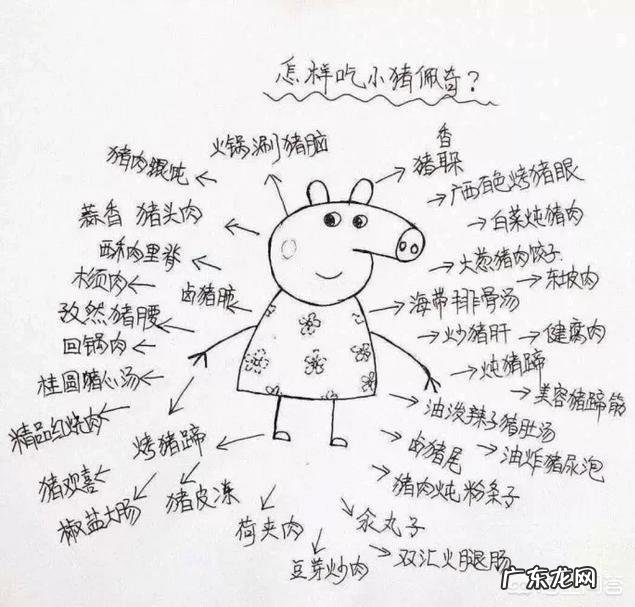 怎样吃小猪佩奇?
火锅涮猪脑
香
猪耳朵
猪肉馄饨
广西百色烤猪眼
蒜香 猪头肉
白菜炖猪肉
酥和肉里脊
大葱猪肉饺子
东坡肉
木须肉
卤猪脏
海带排骨汤
孜然猪腰
炒猪肝
健腐肉
回锅肉
炖猪蹄
桂圆猪心汤
美容猪蹄筋
精品红烧肉
油泼辣子猪肚汤
烤猪蹄
卤猪尾
油炸猪尿泡
猪欢喜
猪皮冻
猪肉炖粉条子
椒盐大肠
荷夹肉
汆丸子
豆芽炒肉
双汇火腿肠
广东龙网